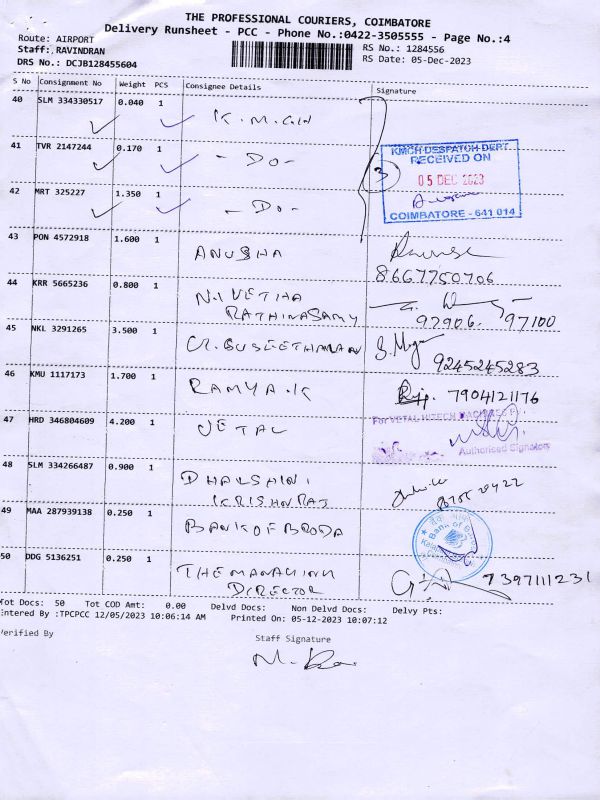 THE PROFESSIONAL COURIERS, COIMBATORE
Delivery Runsheet - PCC - Phone No.:0422-3505555 - Page No.:4
Route: AIRPORT
RS No.: 1284556
Staff: RAVINDRAN
RS Date: 05-Dec-2023
DRS No.: DCJB128455604
S No Consignment No Weight PCS Consignee Details Signature
40 SLM 334330517 0.040 1 K.M.CH
41 TVR 2147244 0.170 1 - Do -
42 MRT 325227 1.350 1 - Do -
3
KMCH DESPATCH DEPT.
RECEIVED ON
05 DEC 2023
COIMBATORE - 641 014
43 PON 4572918 1.600 1 ANUSHA
8667750706
44 KRR 5665236 0.800 1 NIVETHA
RATHINASAMY
97906. 97100
45 NKL 3291265 3.500 1
9245245283
46 KMU 1117173 1.700 1 RAMYA.K 7904121176
47 HRD 346804609 4.200 1 VETAL
For VETAL HITECH MACHINES
Authorised Signatory
48 SLM 334266487 0.900 1 DHARSHINI
KRISHNRAJ
49 MAA 287939138 0.250 1 BANK OF BRODA
Bank of
50 DDG 5136251 0.250 1 THE MANAGING
DIRECTOR
7397111231
Tot Docs: 50 Tot COD Amt: 0.00 Delvd Docs: Non Delvd Docs: Delvy Pts:
Entered By :TPCPCC 12/05/2023 10:06:14 AM Printed On: 05-12-2023 10:07:12
Verified By Staff Signature